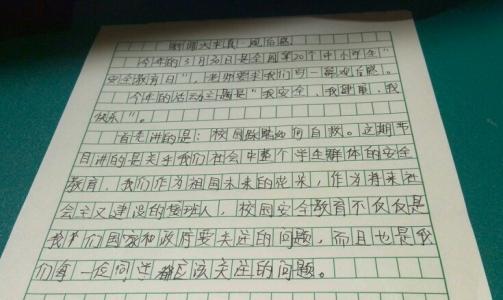 观后感
今年的3月30日是全国第20个中小学生“
安全教育日”，老师要求我们写一篇观后感。
今年的活动主题是“我安全，我健康，我
快乐”。
首先讲的是：校园踩踏的自救。这期节
目讲的是关于我们社会中整个学生群体的安全
教育，我们作为祖国未来的花朵，作为将来社
会主义建设的接班人，校园安全教育不仅仅是
我们国家和政府要关注的问题，而且也是我
们每一位同学都应该关注的问题。